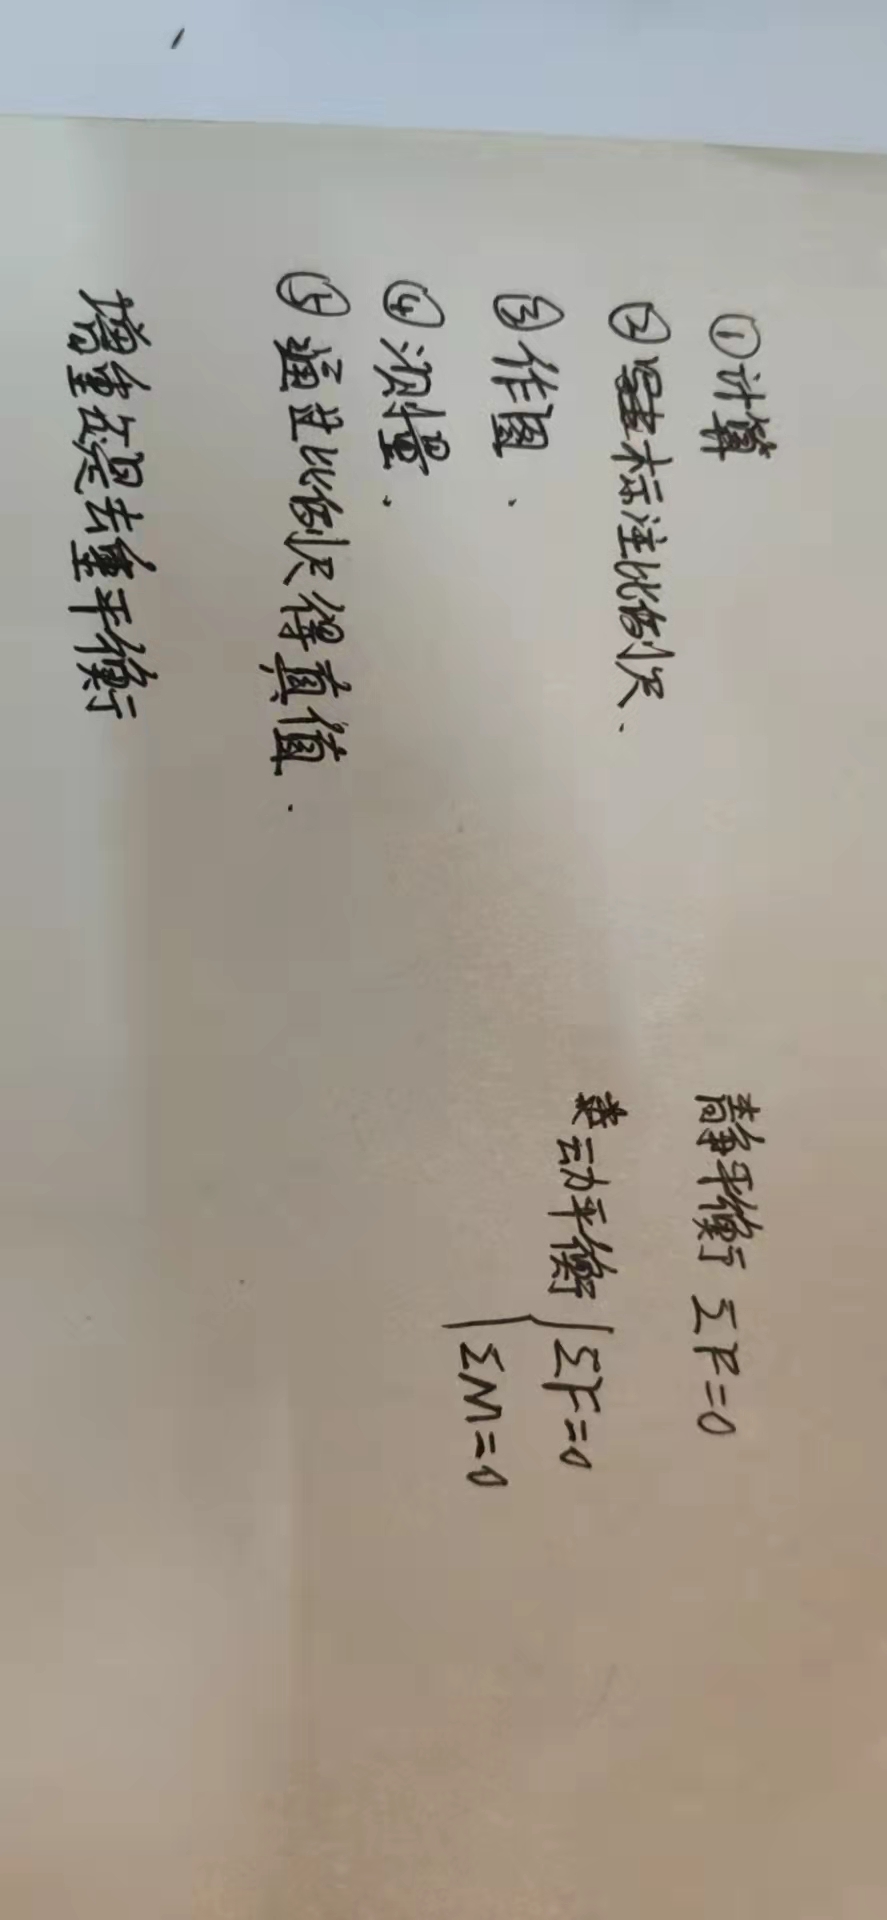 ①计算
②标注比例尺.
③作图.
④测量.
⑤通过比例尺得真值.
增重还是去重平衡
静平衡 ΣF=0
动平衡 { ΣF=0
ΣM=0